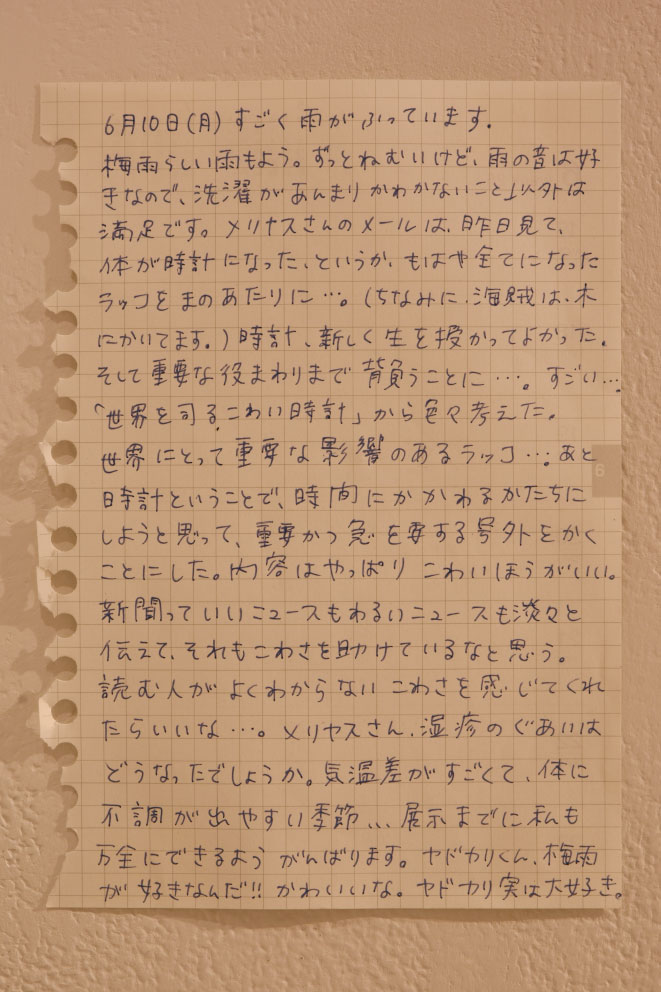 6月10日(月)すごく雨がふっています.
梅雨らしい雨もよう。ずっとねむいけど、雨の音は好
きなので、洗濯があんまりかわかないこと以外は
満足です。メリヤスさんのメールは、昨日見て、
体が時計になった、というか、もはや全てになった
ラッコをまのあたりに…。(ちなみに、海賊は、木
にかいてます。)時計、新しく生を授かってよかった.
そして重要な役まわりまで背負うことに…。すごい…
「世界を司るこわい時計」から色々考えた。
世界にとって重要な影響のあるラッコ…。あと
時計ということで、時間にかかわるかたちに
しようと思って、重要かつ急を要する号外をかく
ことにした。内容はやっぱりこわいほうがいい。
新聞っていいニュースもわるいニュースも淡々と
伝えて、それもこわさを助けているなと思う。
読む人がよくわからないこわさを感じてくれ
たらいいな…。メリヤスさん、湿疹のぐあいは
どうなったでしょうか。気温差がすごくて、体に
不調が出やすい季節、、、展示までに私も
万全にできるようがんばります。ヤドカリくん、梅雨
が好きなんだ!!かわいいな。ヤドカリ実は大好き。